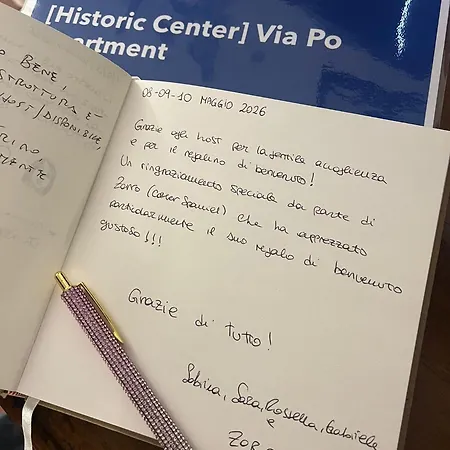 [Historic Center] Via Po
artment
BENE!
STRUTTURA E
HOST/DISPONIBILE,
08-09-10 MAGGIO 2026
Grazie agli host per la gentile accoglienza
e per il regalino di benvenuto!
Un ringraziamento speciale da parte di
Zorro (Cocker Spaniel) che ha apprezzato
particolarmente il suo regalo di benvenuto
gustoso!!!
Grazie di tutto!
Sabina, Sara, Rossella, Gabriele
e
ZOR